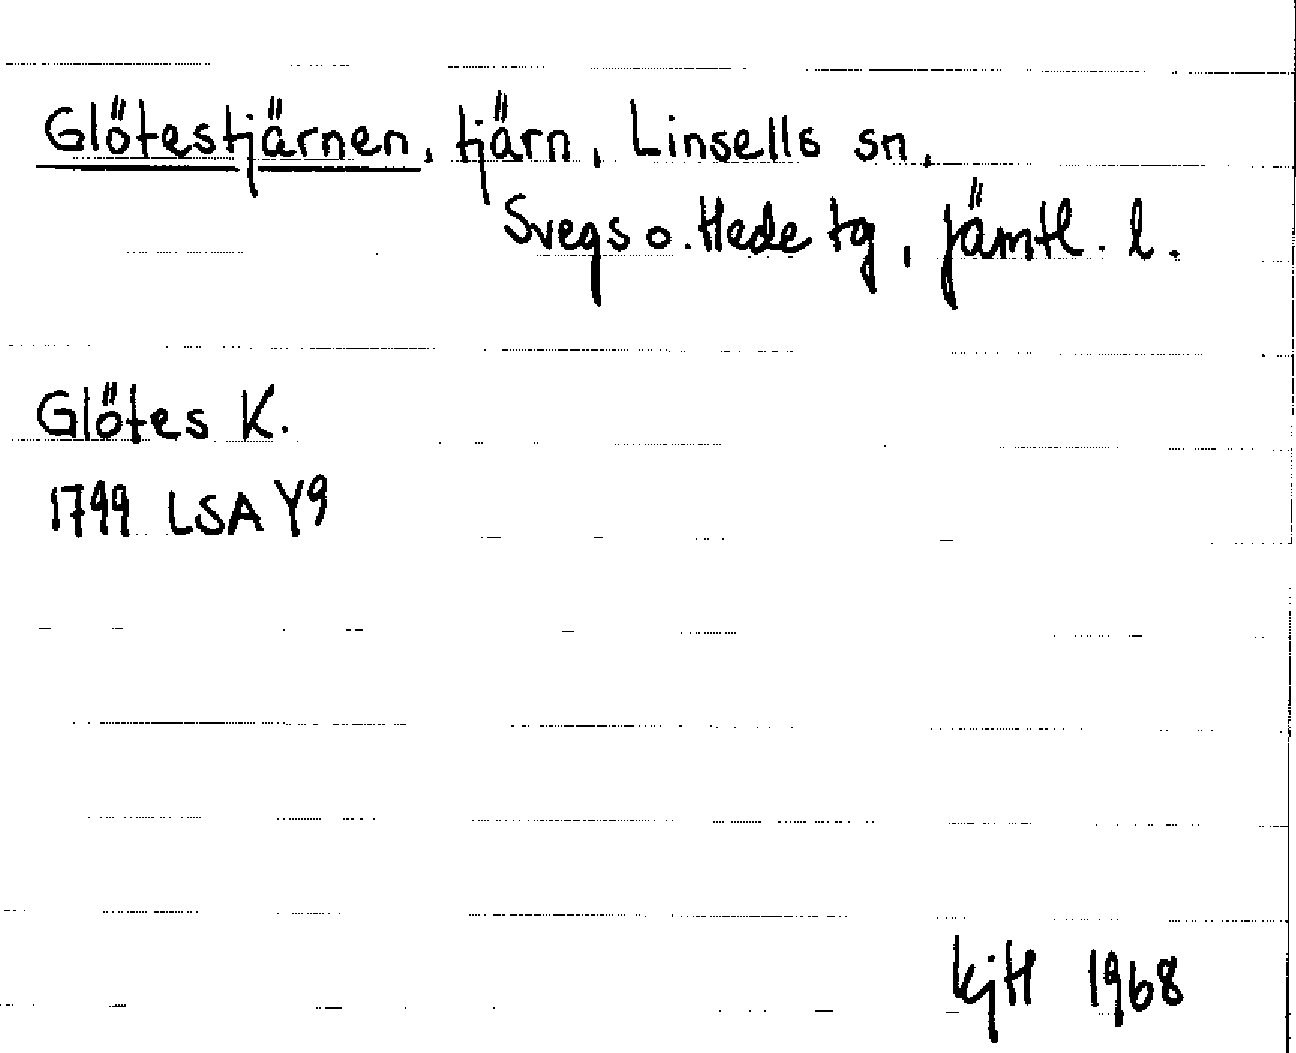 Glötestjärnen, tjärn, Linsells sn,
Svegs o. Hede tg, Jämtl. l.
Glötes K.
1799 LSA Y9
KjH 1968